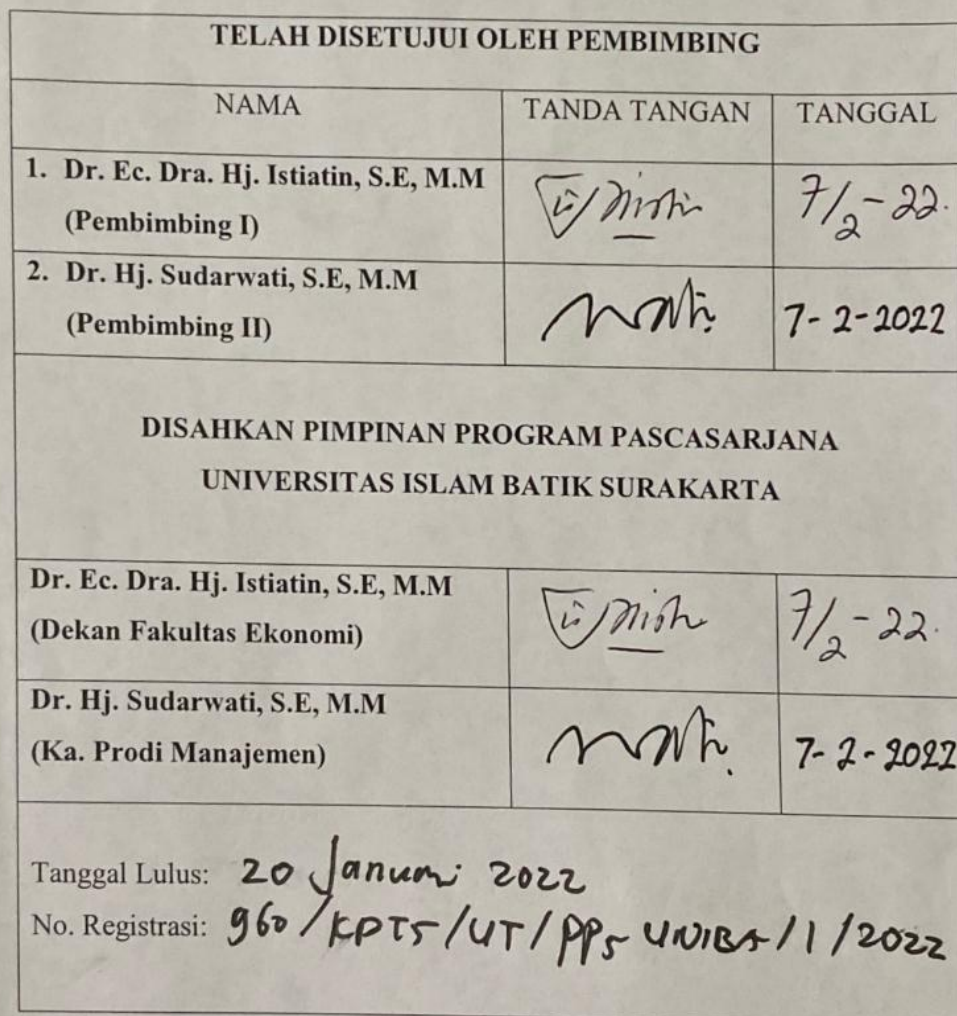 TELAH DISETUJUI OLEH PEMBIMBING
NAMA TANDA TANGAN TANGGAL
1. Dr. Ec. Dra. Hj. Istiatin, S.E, M.M
(Pembimbing I)
7/2-22.
2. Dr. Hj. Sudarwati, S.E, M.M
(Pembimbing II)
7-2-2022
DISAHKAN PIMPINAN PROGRAM PASCASARJANA
UNIVERSITAS ISLAM BATIK SURAKARTA
Dr. Ec. Dra. Hj. Istiatin, S.E, M.M
(Dekan Fakultas Ekonomi)
7/2-22.
Dr. Hj. Sudarwati, S.E, M.M
(Ka. Prodi Manajemen)
7-2-2022
Tanggal Lulus: 20 Januari 2022
No. Registrasi: 960/KPTS/UT/PPS UNIBA/1/2022